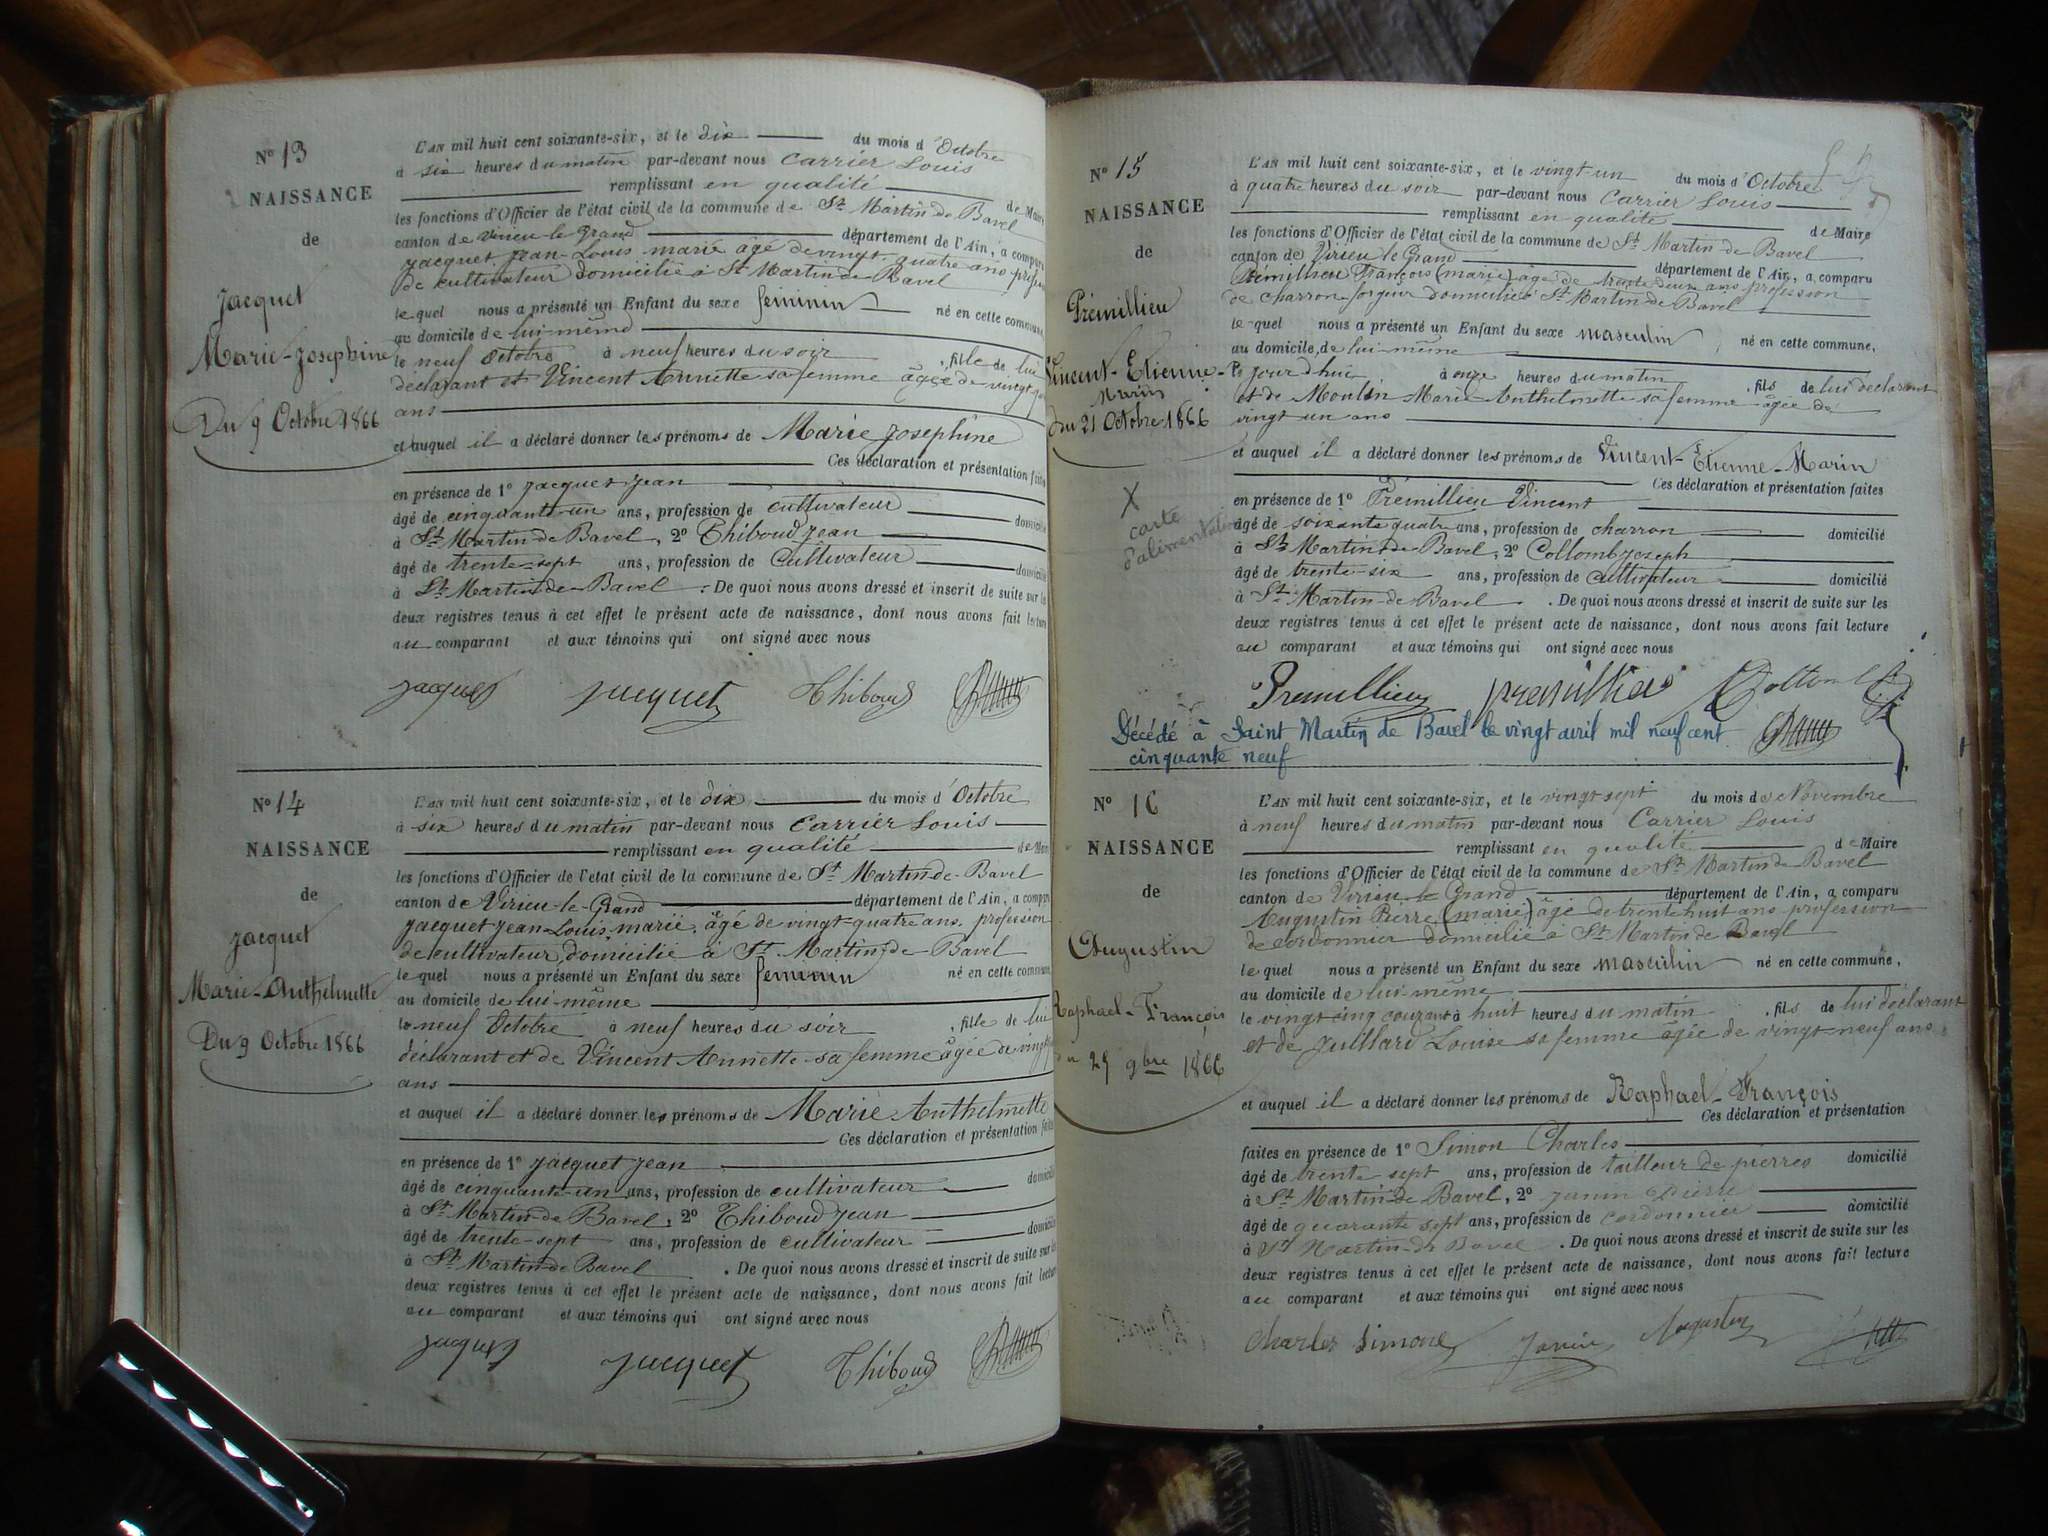 N° 13
NAISSANCE
de
Jacquet
Marie-Josephine
Du 9 Octobre 1866
L'AN mil huit cent soixante-six, et le dix du mois d'Octobre
à six heures du matin par-devant nous Carrier Louis
remplissant en qualité de Maire
les fonctions d'Officier de l'état civil de la commune de St Martin de Bavel
canton de Virieu-le-Grand département de l'Ain, a comparu
Jacquet Jean-Louis marié âgé de vingt quatre ans profession
de cultivateur domicilié à St Martin de Bavel
lequel nous a présenté un Enfant du sexe feminin né en cette commune
au domicile de lui-même
le neuf Octobre à neuf heures du soir, fille de lui
déclarant et Vincent Annette sa femme âgée de vingt
ans
et auquel il a déclaré donner les prénoms de Marie Josephine
Ces déclaration et présentation faites
en présence de 1° Jacquet Jean
âgé de cinquante-un ans, profession de cultivateur domicilié
à St Martin de Bavel, 2° Thiboud Jean
âgé de trente-sept ans, profession de Cultivateur domicilié
à St Martin de Bavel. De quoi nous avons dressé et inscrit de suite sur les
deux registres tenus à cet effet le présent acte de naissance, dont nous avons fait lecture
au comparant et aux témoins qui ont signé avec nous
Jacquet Jacquet Thiboud
N° 14
NAISSANCE
de
Jacquet
Marie-Anthelmette
Du 9 Octobre 1866
L'AN mil huit cent soixante-six, et le dix du mois d'Octobre
à six heures du matin par-devant nous Carrier Louis
remplissant en qualité de Maire
les fonctions d'Officier de l'état civil de la commune de St Martin-de-Bavel
canton de Virieu-le-Grand département de l'Ain, a comparu
Jacquet Jean-Louis, marié, âgé de vingt-quatre ans, profession
de cultivateur, domicilié à St Martin-de-Bavel
lequel nous a présenté un Enfant du sexe feminin né en cette commune,
au domicile de lui-même
le neuf Octobre à neuf heures du soir, fille de lui
déclarant et de Vincent Annette sa femme âgée de vingt
ans
et auquel il a déclaré donner les prénoms de Marie Anthelmette
Ces déclaration et présentation faites
en présence de 1° Jacquet Jean
âgé de cinquante-un ans, profession de cultivateur domicilié
à St Martin de Bavel, 2° Thiboud Jean
âgé de trente-sept ans, profession de cultivateur domicilié
à St Martin de Bavel. De quoi nous avons dressé et inscrit de suite sur les
deux registres tenus à cet effet le présent acte de naissance, dont nous avons fait lecture
au comparant et aux témoins qui ont signé avec nous
Jacquet Jacquet Thiboud
N° 15
NAISSANCE
de
Prémillieu
Vincent-Etienne-
Marin
du 21 Octobre 1866
X
carte
d'alimentation
L'AN mil huit cent soixante-six, et le vingt un du mois d'Octobre
à quatre heures du soir par-devant nous Carrier Louis
remplissant en qualité de Maire
les fonctions d'Officier de l'état civil de la commune de St Martin-de-Bavel
canton de Virieu le Grand département de l'Ain, a comparu
Prémillieu François (marié) âgé de trente deux ans profession
de charron forgeur domicilié à St Martin de Bavel
lequel nous a présenté un Enfant du sexe masculin, né en cette commune,
au domicile de lui-même
le jour d'hui à onze heures du matin, fils de lui déclarant
et de Moulin Marie Anthelmette sa femme âgée de
vingt un ans
et auquel il a déclaré donner les prénoms de Vincent-Etienne-Marin
Ces déclaration et présentation faites
en présence de 1° Prémillieu Vincent
âgé de soixante quatre ans, profession de charron domicilié
à St Martin de Bavel, 2° Collomb Joseph
âgé de trente-six ans, profession de cultivateur domicilié
à St Martin-de-Bavel. De quoi nous avons dressé et inscrit de suite sur les
deux registres tenus à cet effet le présent acte de naissance, dont nous avons fait lecture
au comparant et aux témoins qui ont signé avec nous
Premillieu premillieu Collomb
Décédé à Saint Martin de Bavel le vingt avril mil neuf cent
cinquante neuf
N° 16
NAISSANCE
de
Augustin
Raphael-François
du 25 9bre 1866
L'AN mil huit cent soixante-six, et le vingt sept du mois de Novembre
à neuf heures du matin par-devant nous Carrier Louis
remplissant en qualité de Maire
les fonctions d'Officier de l'état civil de la commune de St Martin de Bavel
canton de Virieu-le-Grand département de l'Ain, a comparu
Augustin Pierre (marié) âgé de trente huit ans profession
de cordonnier domicilié à St Martin de Bavel
lequel nous a présenté un Enfant du sexe masculin né en cette commune,
au domicile de lui-même
le vingt-cinq courant à huit heures du matin, fils de lui déclarant
et de Juillard Louise sa femme âgée de vingt-neuf ans
et auquel il a déclaré donner les prénoms de Raphael-François
Ces déclaration et présentation
faites en présence de 1° Simon Charles
âgé de trente sept ans, profession de tailleur de pierres domicilié
à St Martin-de Bavel, 2° Janin Pierre
âgé de quarante sept ans, profession de cordonnier domicilié
à St Martin-de Bavel. De quoi nous avons dressé et inscrit de suite sur les
deux registres tenus à cet effet le présent acte de naissance, dont nous avons fait lecture
au comparant et aux témoins qui ont signé avec nous
Charles Simone Janin Augustin